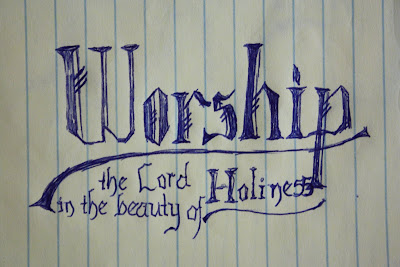 Worship
the Lord
in the beauty of Holiness